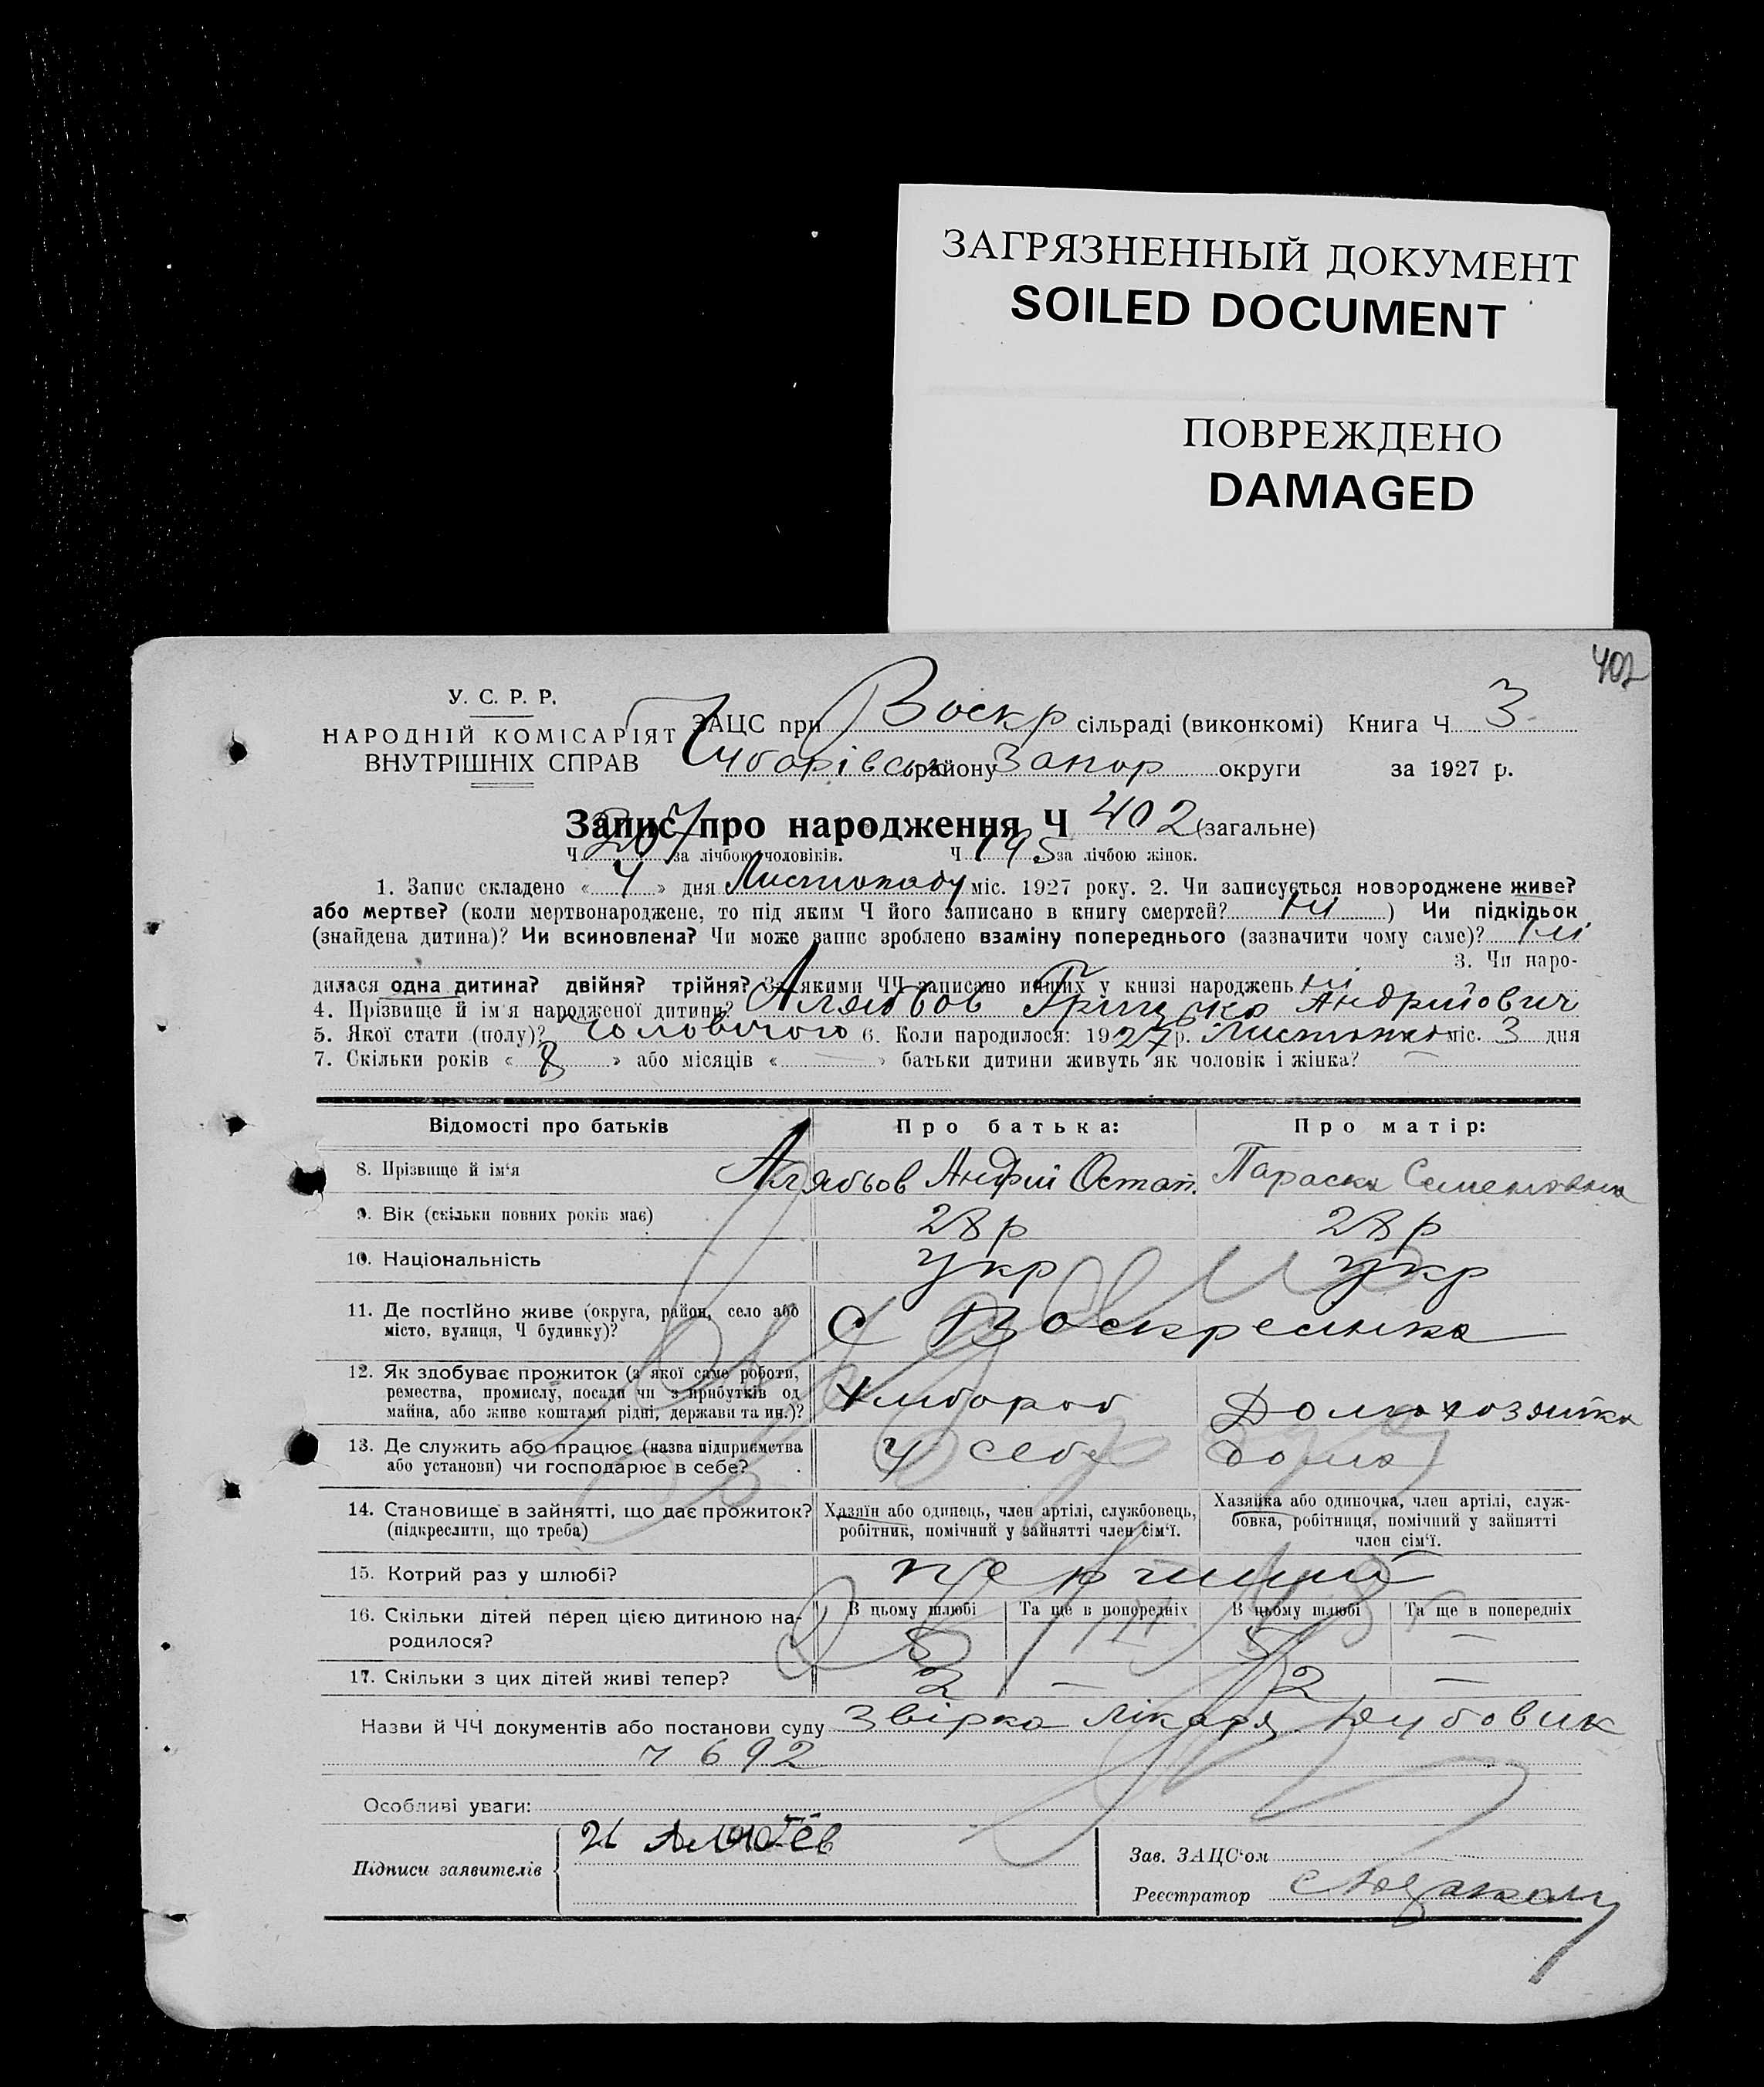 ЗАГРЯЗНЕННЫЙ ДОКУМЕНТ
SOILED DOCUMENT
ПОВРЕЖДЕНО
DAMAGED
402
У. С. Р. Р.
НАРОДНІЙ КОМІСАРІЯТ
ВНУТРІШНІХ СПРАВ
ЗАЦС при Воскр сільраді (виконкомі) Книга Ч 3
Чубарівськ району Запор округи за 1927 р.
Запис про народження Ч 402 (загальне)
Ч 207 за лічбою чоловіків. Ч 195 за лічбою жінок.
1. Запис складено « 4 » дня Листопаду міс. 1927 року. 2. Чи записується новороджене живе?
або мертве? (коли мертвонароджене, то під яким Ч його записано в книгу смертей? ні ) Чи підкідьок
(знайдена дитина)? Чи всиновлена? Чи може запис зроблено взаміну попереднього (зазначити чому саме)? ні
3. Чи наро-
дилася одна дитина? двійня? трійня? За якими ЧЧ записано инших у книзі народжень ні
4. Прізвище й ім'я народженої дитини? Алябьов Грицько Андрійович
5. Якої стати (полу)? Чоловічого 6. Коли народилося: 1927 р. Листопад міс. 3 дня
7. Скільки років « 8 » або місяців « — » батьки дитини живуть як чоловік і жінка? —
Відомості про батьків Про батька: Про матір:
8. Прізвище й ім'я Алябьов Андрій Остап. Параска Семеновна
9. Вік (скільки повних років має) 28 р 28 р
10. Національність Укр Укр
11. Де постійно живе (округа, район, село або
місто, вулиця, Ч будинку)? С Воскресинка
12. Як здобуває прожиток (з якої саме роботи,
ремества, промислу, посади чи з прибутків од
майна, або живе коштами рідні, держави та ин.)? Хлібороб Домохозяйка
13. Де служить або працює (назва підприємства
або установи) чи господарює в себе? У себе дома
14. Становище в зайнятті, що дає прожиток?
(підкреслити, що треба)
Хазяїн або одинець, член артілі, службовець,
робітник, помічний у зайнятті член сім'ї.
Хазяйка або одиночка, член артілі, служ-
бовка, робітниця, помічний у зайнятті
член сім'ї.
15. Котрий раз у шлюбі? перший
16. Скільки дітей перед цією дитиною на-
родилося?
В цьому шлюбі Та ще в попередніх В цьому шлюбі Та ще в попередніх
5 5 —
17. Скільки з цих дітей живі тепер? 2 — 2 —
Назви й ЧЧ документів або постанови суду Звірка лікаря
7692
Особливі уваги:
Підписи заявителів
Зав. ЗАЦС'ом
Реєстратор